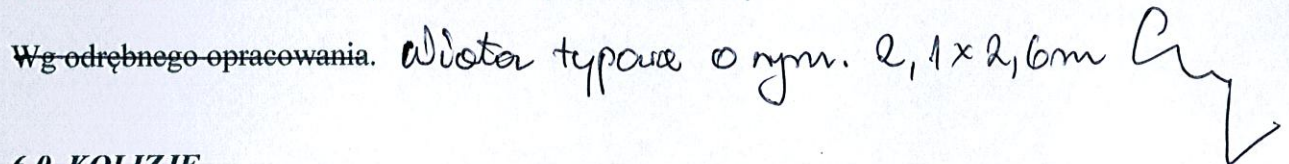 Wg odrębnego opracowania. Wiata typowa o wym. 2,1x2,6m
6.0. KOLIZJE